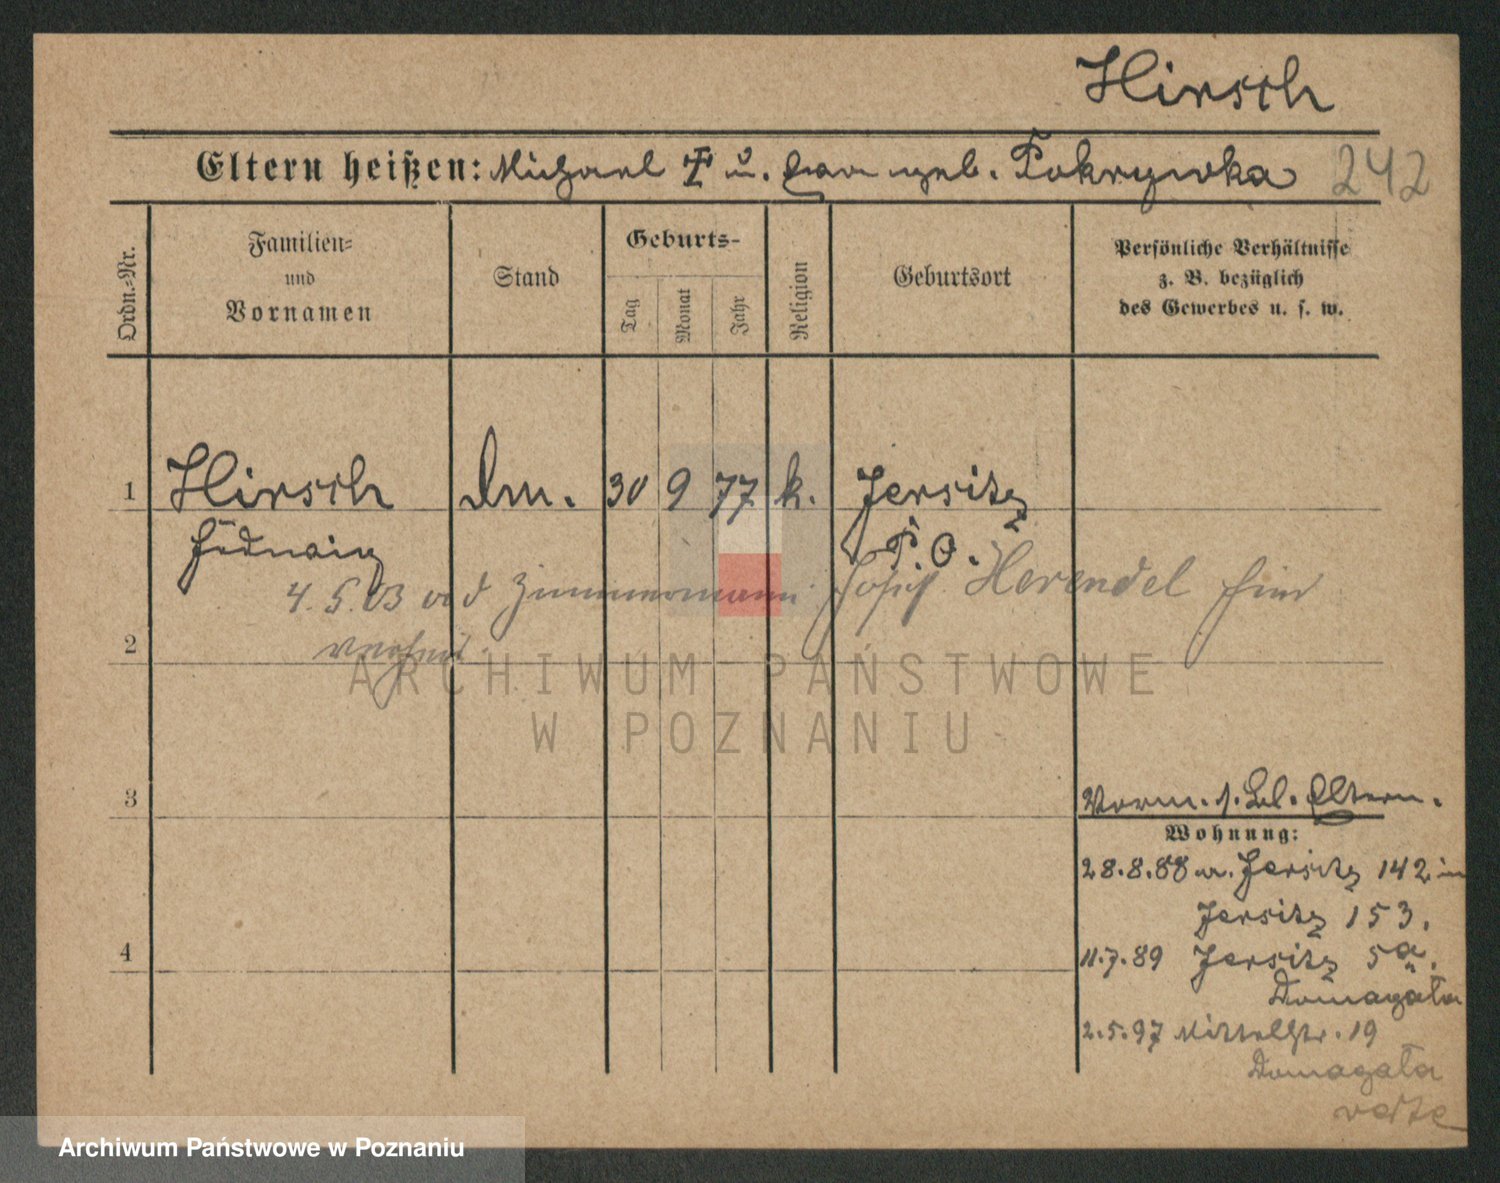 Hirsch
Eltern heißen: Michael † u. Eva geb. Pokrywka 242
Ordn.-Nr.
Familien-
und
Vornamen
Stand
Geburts-
Tag
Monat
Jahr
Religion
Geburtsort
Persönliche Verhältnisse
z. B. bezüglich
des Gewerbes u. s. w.
1 Hirsch 30 9 77 k. Jersitz
Hedwig P. O.
4. 5. 03 Zimmermann Josef Herendel
2
ARCHIWUM PAŃSTWOWE
W POZNANIU
3 Vorm. s. Bl. Eltern.
Wohnung:
28.8.88 v. Jersitz 142 in
Jersitz 153.
4 11.7.89 Jersitz 5a.
Domagała
2.5.97 Mittelstr. 19
Domagała
verte
Archiwum Państwowe w Poznaniu